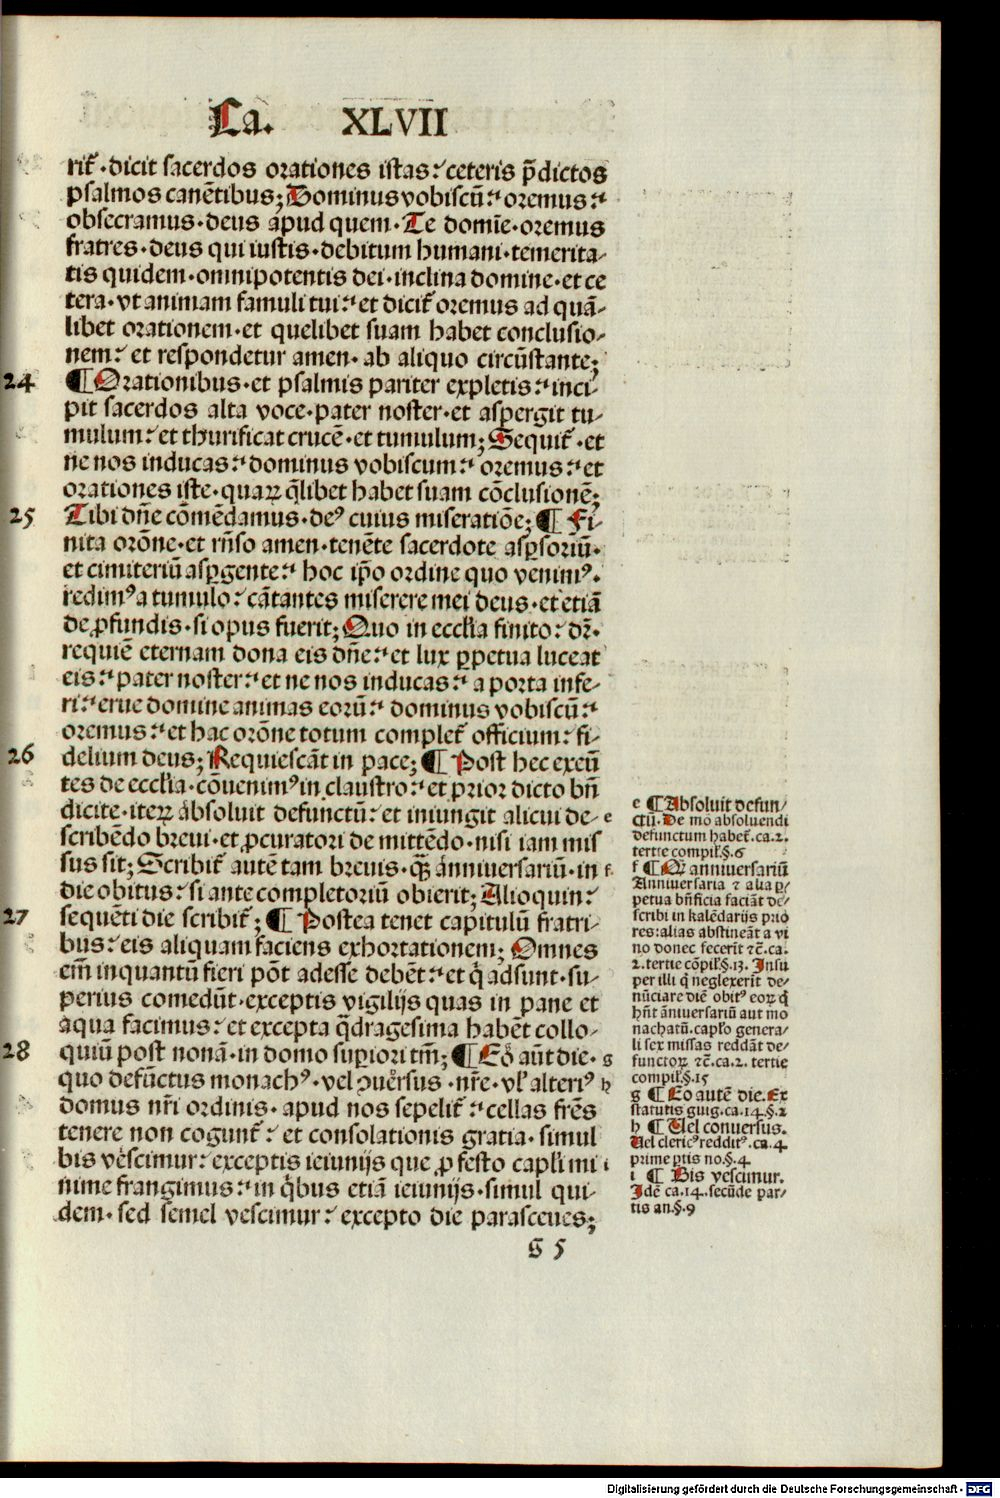 Ca. XLVII
rit᷑ ·dicit sacerdos orationes istas: ceteris p̄dictos
psalmos canētibus; Dominus vobiscū: oremus:
obsecramus·deus apud quem·Te domīe·oremus
fratres·deus qui iustis·debitum humani·temerita-
tis quidem·omnipotentis dei·inclina domine·et ce
tera·vt animam famuli tui: et dicit᷑ oremus ad quā-
libet orationem·et quelibet suam habet conclusio-
nem: et respondetur amen·ab aliquo circūstante;
24 ¶ Orationibus·et psalmis pariter expletis: inci-
pit sacerdos alta voce·pater noster·et aspergit tu-
mulum: et thurificat crucē·et tumulum; Sequit᷑ ·et
ne nos inducas: dominus vobiscum: oremus: et
orationes iste·quaꝝ q̄libet habet suam cōclusionē;
25 Tibi dn̄e cōmēdamus·deꝰ cuius miseratiōe; ¶ Fi-
nita orōne·et rn̄so amen·tenēte sacerdote asꝑsoriū·
et cimiteriū asꝑgente: hoc ip̄o ordine quo venimꝰ·
redimꝰ a tumulo: cātantes miserere mei deus·et etiā
de ꝓfundis·si opus fuerit; Quo in eccl̄ia finito: dr̄·
requiē eternam dona eis dn̄e: et lux ꝑpetua luceat
eis: pater noster: et ne nos inducas: a porta infe-
ri: erue domine animas eorū: dominus vobiscū:
oremus: et hac orōne totum complet᷑ officium: fi-
26 delium deus; Requiescāt in pace; ¶ Post hec exeū
tes de eccl̄ia·cōvenimꝰ in claustro: et prior dicto bn̄
dicite·iteꝝ absoluit defunctū: et iniungit alicui de- e
scribēdo brevi·et ꝓcuratori de mittēdo·nisi iam mis
sus sit; Scribit᷑ autē tam brevis·qꝫ anniversariū·in f
die obitus: si ante completoriū obierit; Alioquin:
27 sequēti die scribit᷑; ¶ Postea tenet capitulū fratri-
bus: eis aliquam faciens exhortationem; Omnes
em̄ inquantū fieri pōt adesse debēt: et q̄ adsunt·su-
perius comedūt·exceptis vigilijs quas in pane et
aqua facimus: et excepta q̄dragesima habēt collo-
28 quiū post nonā·in domo suꝑiori tm̄; ¶ Eō aūt die· g
quo defūctus monachꝰ·vel ꝯuersus·nr̄e·vl̓ alteriꝰ h
domus nr̄i ordinis·apud nos sepelit᷑: cellas fr̄es
tenere non cogunt᷑: et consolationis gratia·simul
bis vescimur: exceptis ieiunijs que ꝓ festo capl̄i mi i
nime frangimus: in q̇bus etiā ieiunijs·simul qui-
dem·sed semel vescimur: excepto die parasceues;
G 5
e ¶ Absoluit defun/
ctū. De mō absoluendi
defunctum habet᷑.ca.2.
tertie compil᷑.§.6
f ¶ Qꝫ anniversariū
Anniversaria ⁊ alia ꝑ/
petua bn̄ficia faciāt de/
scribi in kalēdarijs prio
res: alias abstineāt a vi
no donec fecerīt ⁊c̄.ca.
2.tertie cōpil᷑.§.13. Insu
per illi q̄ neglexerīt de/
nūciare diē obitꝰ eoꝝ q̄
hn̄t āniversariū aut mo
nachatū.caplo genera/
li sex missas reddāt de/
functoꝝ ⁊c̄.ca.2. tertie
compil᷑.§.15
g ¶ Eo autē die. Ex
statutis guig.ca.14.§.2
h ¶ Vel conversus.
Vel clericꝰ redditꝰ.ca.4
prime ptis no.§.4
i ¶ Bis vescimur.
Idē ca.14.secūde par/
tis an.§.9
Digitalisierung gefördert durch die Deutsche Forschungsgemeinschaft - DFG